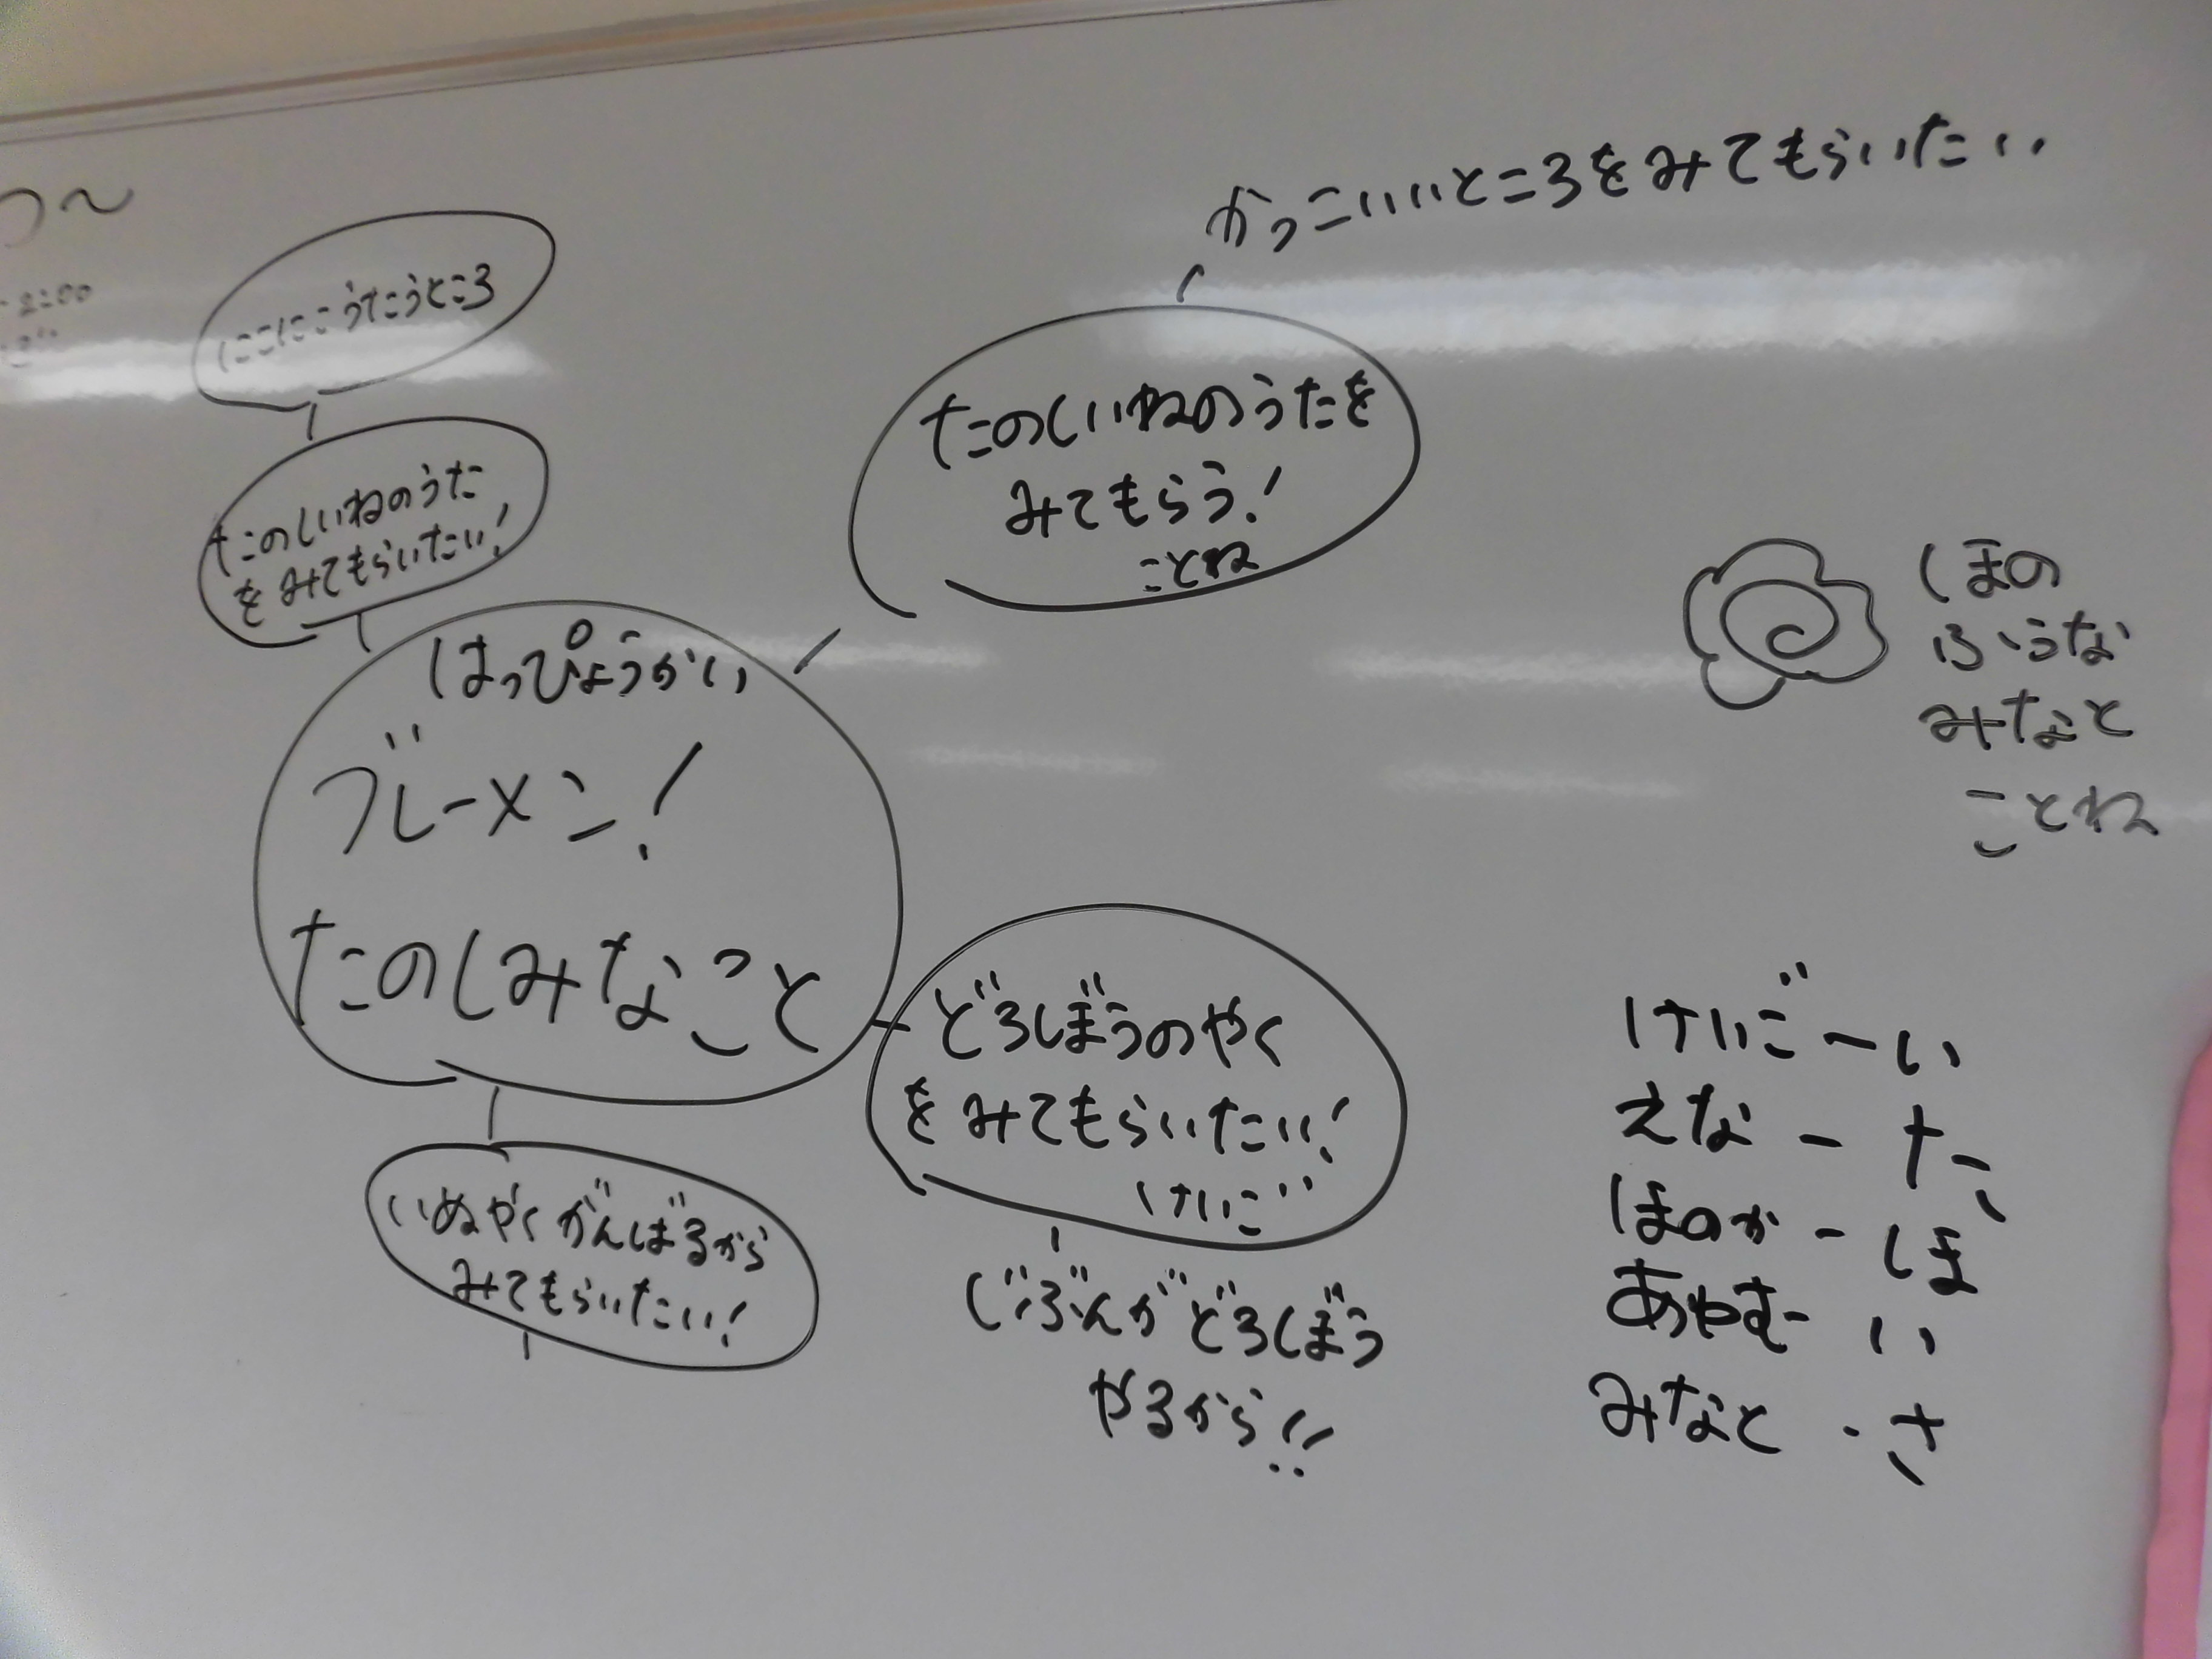 かっこいいところをみてもらいたい
にこにこうたうところ
たのしいねのうた
をみてもらいたい!
たのしいねのうたを
みてもらう!
ことね
はっぴょうかい
ブレーメン!
たのしみなこと
どろぼうのやく
をみてもらいたい!
けいご
じぶんがどろぼう
やるから!!
いぬやくがんばるから
みてもらいたい!
しほの
ふうな
みなと
ことね
けいご ー い
えな ー た
ほのか ー ほ
あやむ ー い
みなと ・ さ